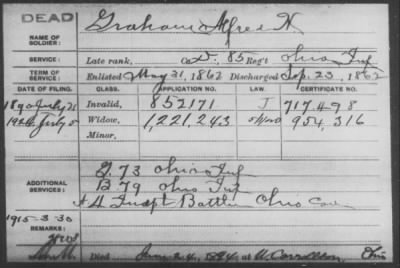 DEAD
Graham Alfred H
NAME OF SOLDIER:
SERVICE: Late rank, Co. D, 85 Reg't Ohio Inf
TERM OF SERVICE: Enlisted May 31, 1862 Discharged Sep. 23, 1862
DATE OF FILING. CLASS. APPLICATION NO. LAW. CERTIFICATE NO.
1890 July 21 Invalid, 852171 J 717,498
1924 July 5 Widow, 1,221,243 954,316
Minor,
ADDITIONAL SERVICES:
73 Ohio Inf
B 79 Ohio Inf
Indpt Battln Ohio Cav
1915-3-30
REMARKS:
Died June 24, 1924 at Carrollton, Ohio